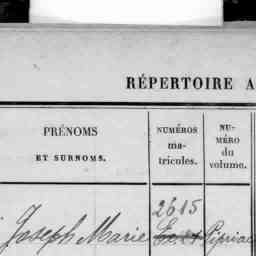 RÉPERTOIRE A
PRÉNOMS
ET SURNOMS.
NUMÉROS
ma-
tricules.
NU-
MÉRO
du
volume.
2615
Joseph Marie
Pipriac